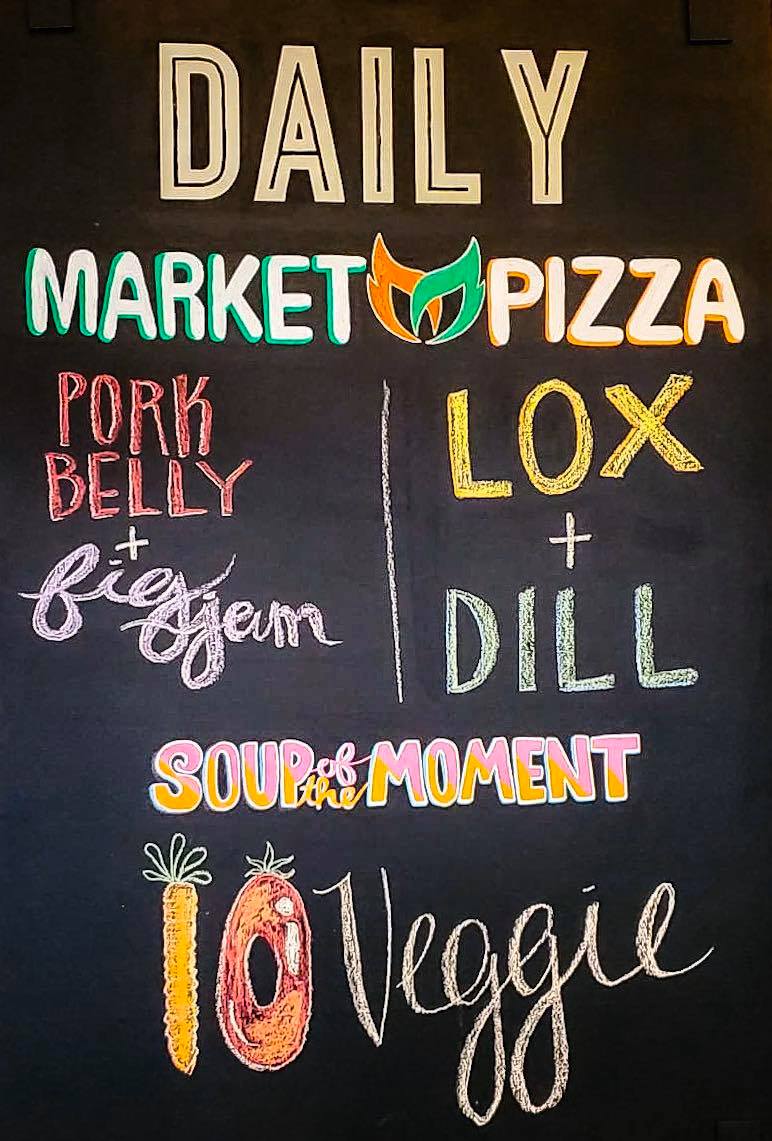 DAILY
MARKET PIZZA
PORK
BELLY
+
fig jam
LOX
+
DILL
SOUP of the MOMENT
10 Veggie